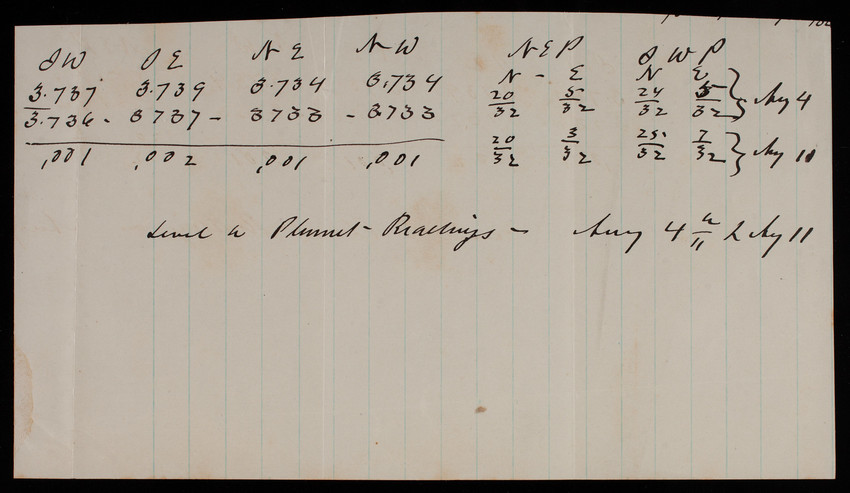 SW SE NE NW NEP SWP
N - E N E
3.737 3.739 3.734 3.734 20/32 5/32 24/32 5/32 } Aug 4
3.736 - 3737 - 3733 - 3733
,001 ,002 ,001 ,001 20/32 3/32 25/32 7/32 } Aug 11
Level & Plummet - Readings - Aug 4 & Aug 11